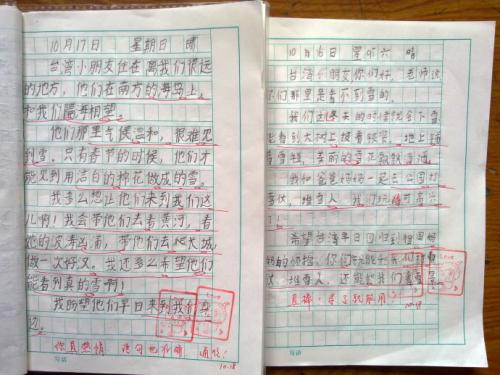 10月17日 星期日 晴
台湾小朋友住在离我们很远
的地方,他们在南方的海岛上,
和我们隔海相望。
他们那里气候温和,很难见
到雪,只有春节的时候,他们才
能见到用洁白的棉花做成的雪。
我多么想让他们来到我们这
儿啊!我会带他们去看黄河,看
她的波涛汹涌,带他们去爬长城,
做一次好汉。我还多么希望他们
能看到真的雪啊!
我盼望他们早日来到我们身
边。
你真热情 语句也不错 通顺!
10.18
10月16日 星期六 晴
台湾小朋友你们好,老师说
你们那里是看不到雪的。
我们这冬天的时候就会下雪
能看到大树上披着银装,地上铺
着雪毯,美丽的雪花飘飘洒洒。
我和爸爸妈妈一起去公园打
雪仗、堆雪人,我们玩得可高兴
了!
希望台湾早日回归到祖国妈
妈的怀抱,你们
仗、堆雪人,还能
真棒!
10.18